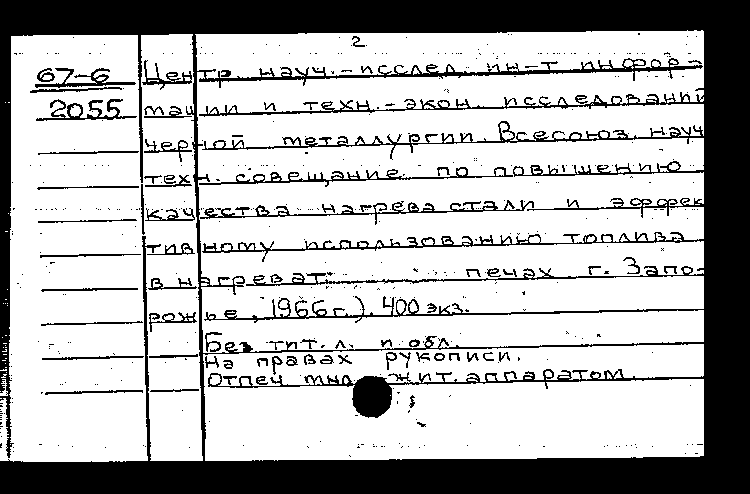 2
67-6 Центр. науч.-исслед. ин-т инфор-
2055 мации и техн.-экон. исследований
черной металлургии. Всесоюз. науч
техн. совещание по повышению
качества нагрева стали и эффек
тивному использованию топлива
в нагреват. печах г. Запо-
рожье, 1966 г.). 400 экз.
Без тит. л. и обл.
На правах рукописи.
Отпеч. множит. аппаратом.